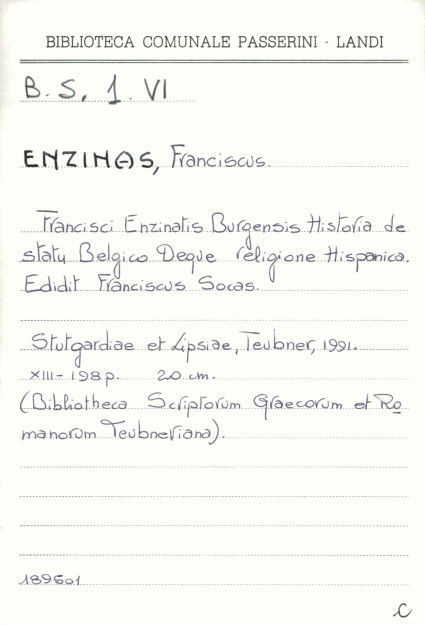 BIBLIOTECA COMUNALE PASSERINI - LANDI
B. S. 1. VI
ENZINAS, Franciscus.
Francisci Enzinatis Burgensis Historia de
statu Belgico Deque religione Hispanica.
Edidit Franciscus Socas.
Stutgardiae et Lipsiae, Teubner, 1991.
XIII-198 p. 20 cm.
(Bibliotheca Scriptorum Graecorum et Ro
manorum Teubneriana).
189601
C